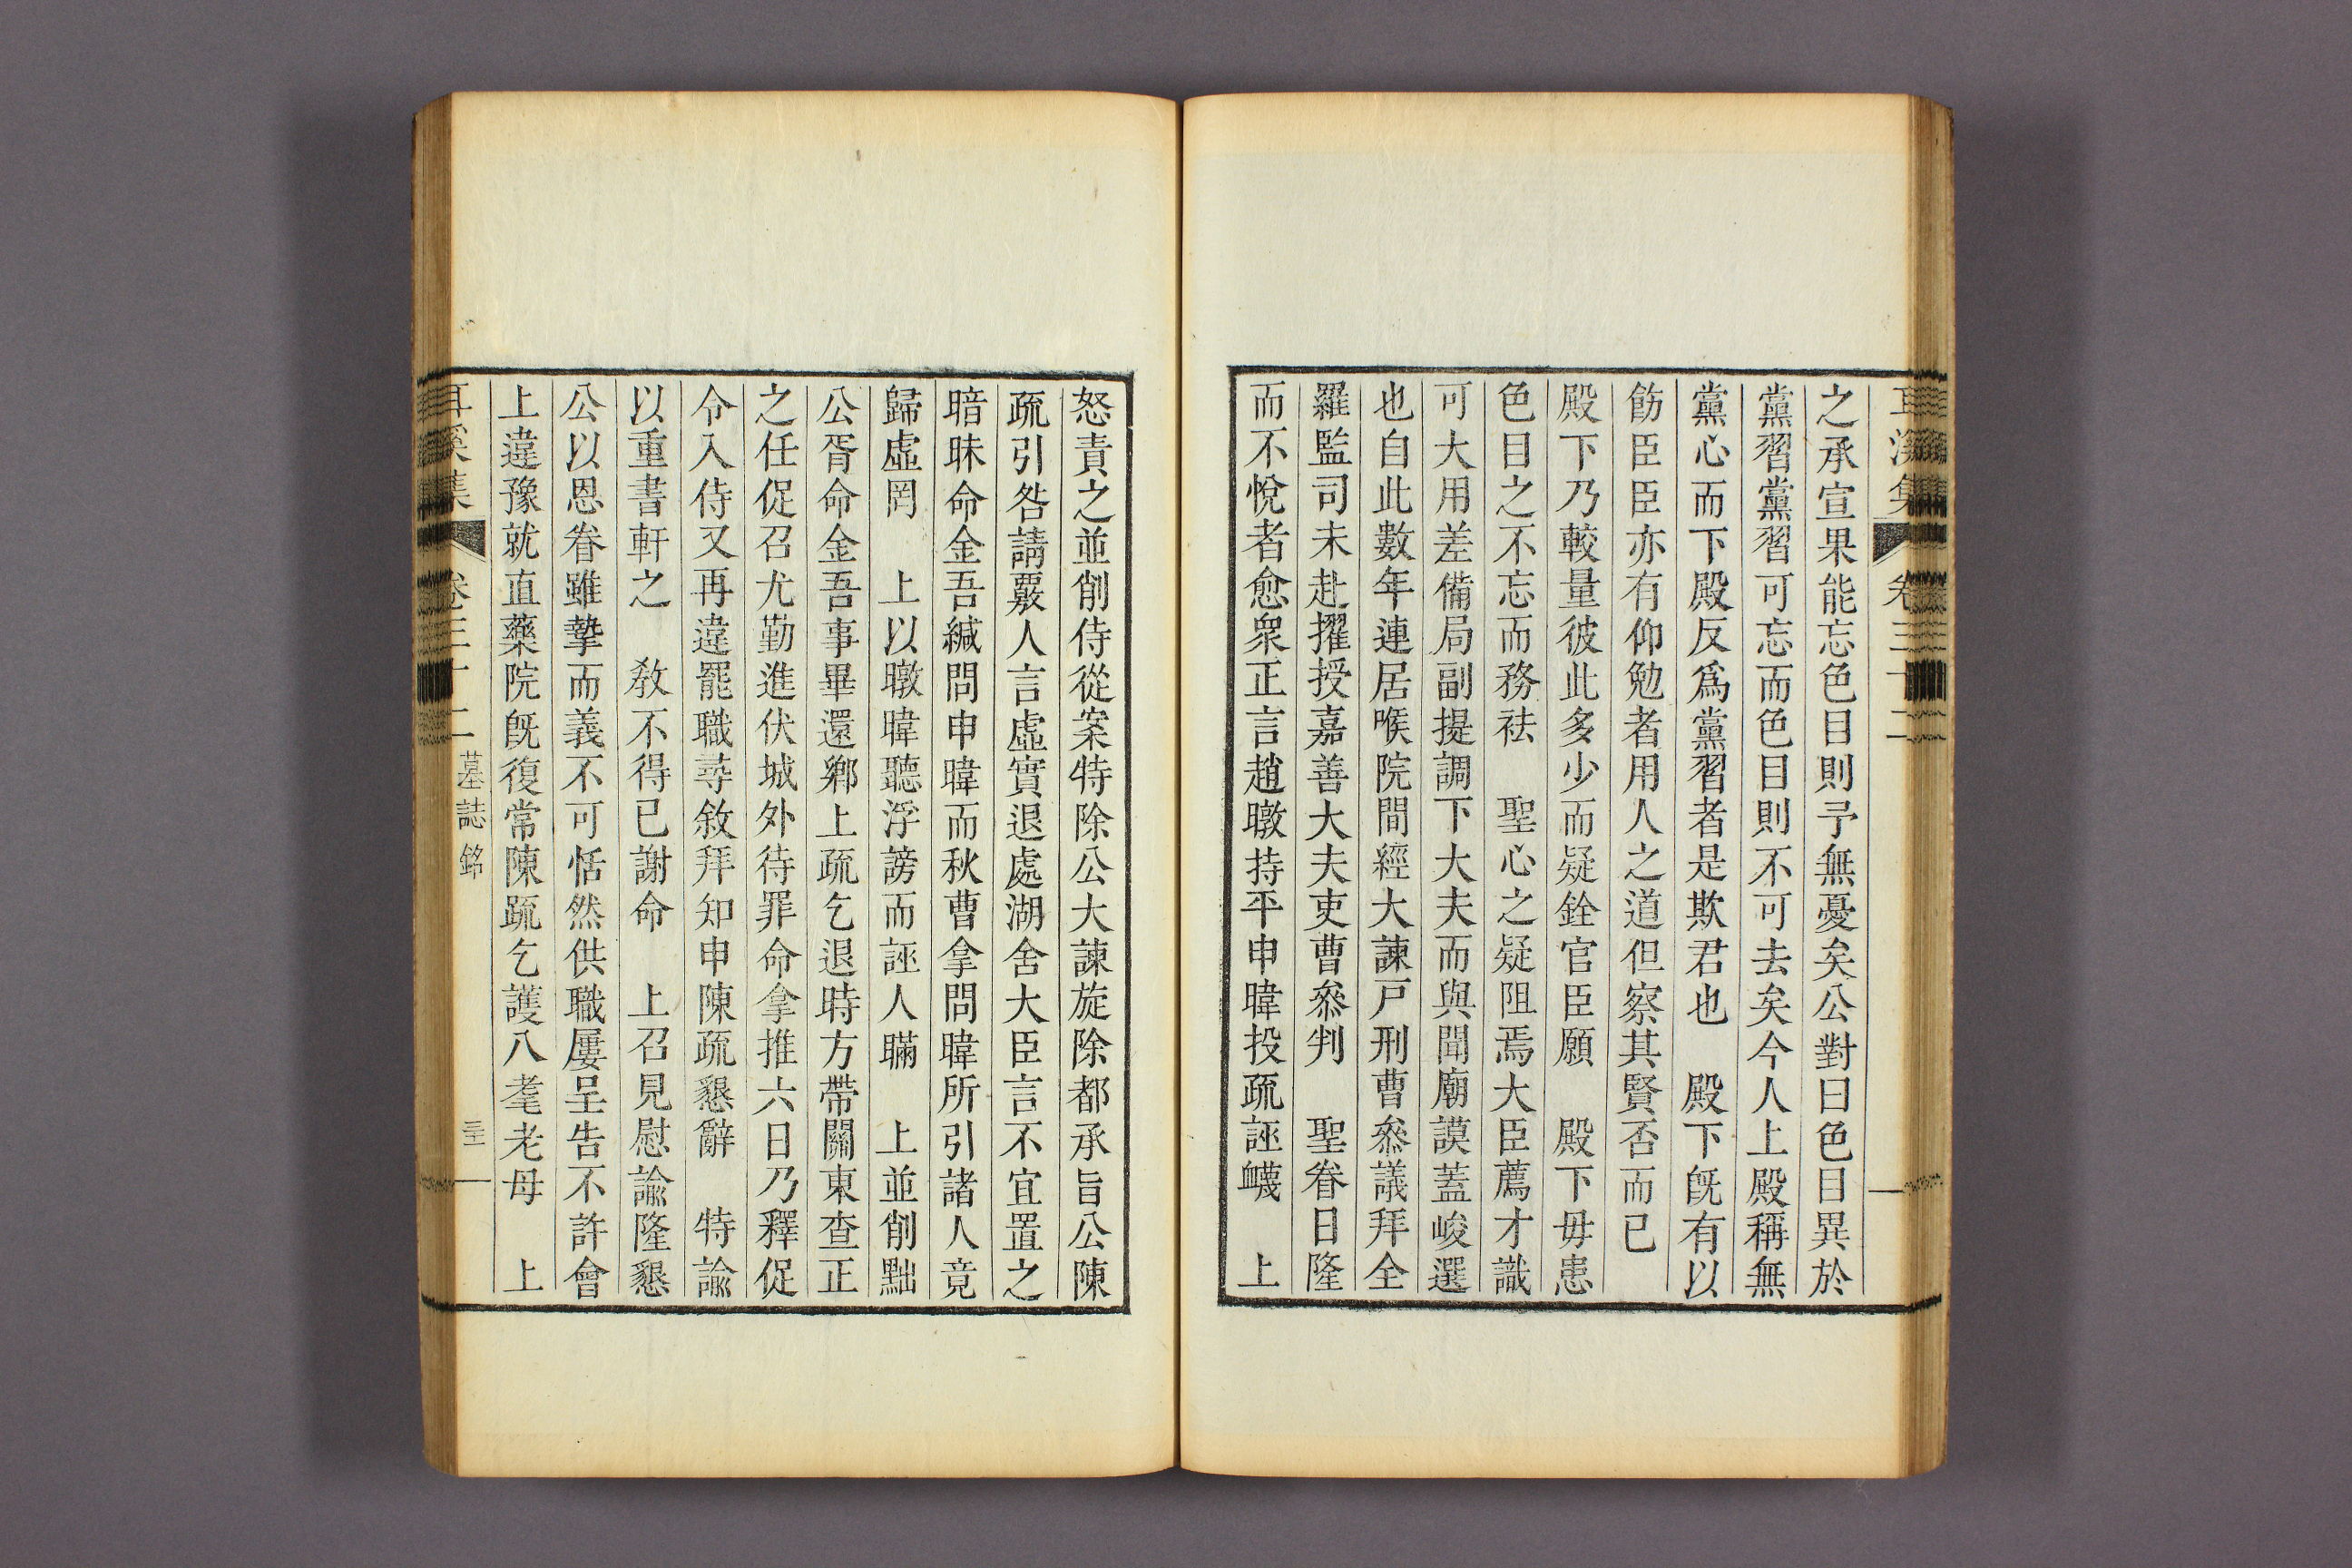 耳溪集 卷三十二
之承宣果能忘色目則予無憂矣公對曰色目異於
黨習黨習可忘而色目則不可去矣今人上殿稱無
黨心而下殿反爲黨習者是欺君也 殿下旣有以
飭臣臣亦有仰勉者用人之道但察其賢否而已
殿下乃較量彼此多少而疑銓官臣願 殿下毋患
色目之不忘而務祛 聖心之疑阻焉大臣薦才識
可大用差備局副提調下大夫而與聞廟謨蓋峻選
也自此數年連居喉院間經大諫戶刑曹叅議拜全
羅監司未赴擢授嘉善大夫吏曹叅判 聖眷日隆
而不悅者愈衆正言趙暾持平申暐投疏誣衊 上
怒責之並削侍從案特除公大諫旋除都承旨公陳
疏引咎請覈人言虛實退處湖舍大臣言不宜置之
暗昧命金吾緘問申暐而秋曹拿問暐所引諸人竟
歸虛罔 上以暾暐聽浮謗而誣人瞞 上並削黜
公胥命金吾事畢還鄕上疏乞退時方帶關東查正
之任促召尤勤進伏城外待罪命拿推六日乃釋促
令入侍又再違罷職尋敘拜知申陳疏懇辭 特諭
以重書軒之 敎不得已謝命 上召見慰諭隆懇
公以恩眷雖摯而義不可恬然供職屢呈告不許會
上違豫就直藥院旣復常陳疏乞護八耋老母 上
耳溪集 卷三十二 墓誌銘